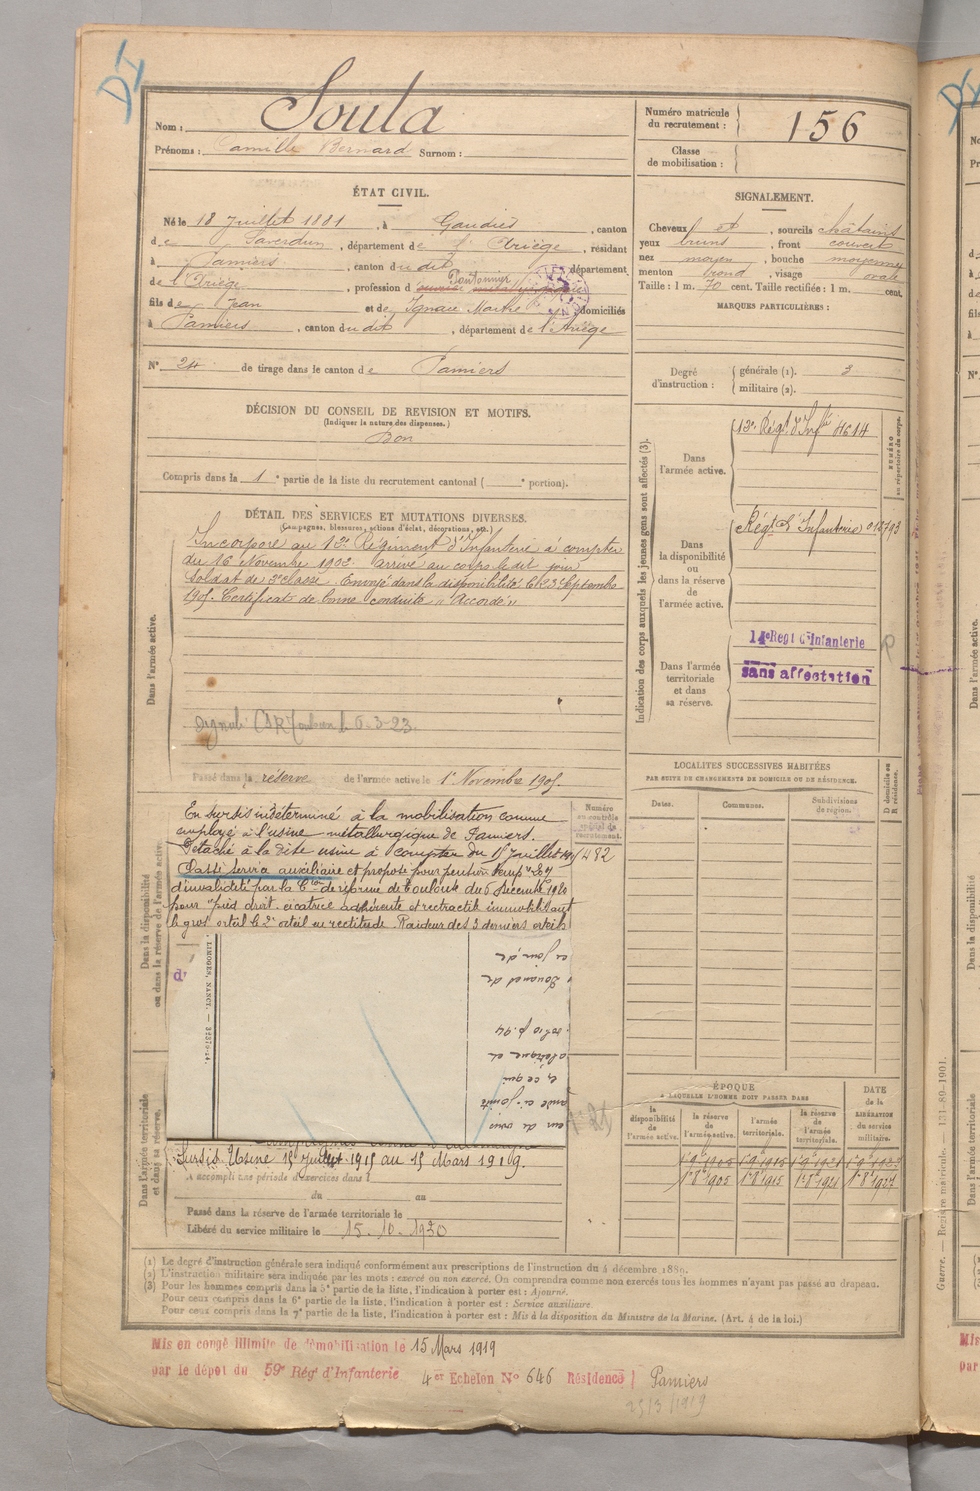 Nom : Soula
Prénoms : Camille Bernard Surnom :
Numéro matricule du recrutement : 156
Classe de mobilisation :
ÉTAT CIVIL.
Né le 18 Juillet 1881, à Gaudiès, canton
de Saverdun, département de l'Ariège, résidant
à Pamiers, canton du dit, département
de l'Ariège, profession d
fils de Jean et de Ignace Marthe domiciliés
à Pamiers, canton du dit, département de l'Ariège
N° 24 de tirage dans le canton de Pamiers
SIGNALEMENT.
Cheveux et, sourcils châtains
yeux bruns, front couvert
nez moyen, bouche moyenne
menton rond, visage ovale
Taille : 1 m. 70 cent. Taille rectifiée : 1 m. cent.
MARQUES PARTICULIÈRES :
Degré d'instruction : générale (1). 3
militaire (2).
DÉCISION DU CONSEIL DE REVISION ET MOTIFS.
(Indiquer la nature des dispenses.)
Bon
Compris dans la 1e partie de la liste du recrutement cantonal ( e portion).
DÉTAIL DES SERVICES ET MUTATIONS DIVERSES.
(Campagnes, blessures, actions d'éclat, décorations, etc.)
Dans l'armée active.
Incorporé au 12e Régiment d'Infanterie à compter
du 16 Novembre 1902 arrivé au corps le dit jour
Soldat de 2e classe. Envoyé dans la disponibilité le 23 Septembre
1905. Certificat de bonne conduite "Accordé"
6-3-23
Passé dans la réserve de l'armée active le 1er Novembre 1905.
Indication des corps auxquels les jeunes gens sont affectés (3).
Dans l'armée active.
12e Régt d'Infie 4614
NUMÉRO au répertoire du corps.
Dans la disponibilité ou dans la réserve de l'armée active.
Régt d'Infanterie 012793
Dans l'armée territoriale et dans sa réserve.
14e Régt d'Infanterie
sans affectation
LOCALITÉS SUCCESSIVES HABITÉES
PAR SUITE DE CHANGEMENTS DE DOMICILE OU DE RÉSIDENCE.
Dates. Communes. Subdivisions de région. D domicile ou R résidence.
Dans la disponibilité ou dans la réserve de l'armée active.
En sursis indéterminé à la mobilisation comme
employé à l'usine métallurgique de Pamiers.
Détaché à la dite usine à compter du 15 Juillet
Classé service auxiliaire et proposé pour pension
d'invalidité par la Cion de réforme de Toulouse du 6 Décembre 1920
pour "pied droit. cicatrice adhérente et rétractile immobilisant
le gros orteil le 2e orteil en rectitude. Raideur des 3 derniers orteils
Numéro au contrôle spécial du recrutement.
482
LIMOGES, NANCY. — 3257-14.
ce jour, de
Douanes de
folio p. 94
é, ce qui
Dans l'armée territoriale et dans sa réserve.
Sursis Usine 15 Juillet 1915 au 15 Mars 1919.
A accompli une période d'exercices dans l
du au
Passé dans la réserve de l'armée territoriale le
Libéré du service militaire le 15-10-1930
ÉPOQUE
A LAQUELLE L'HOMME DOIT PASSER DANS
la disponibilité de l'armée active. la réserve de l'armée active. l'armée territoriale. la réserve de l'armée territoriale.
DATE de la LIBÉRATION du service militaire.
1er 9bre 1905 1er 9bre 1915 1er 9bre 1921
1er 8bre 1905 1er 8bre 1915 1er 8bre 1921 1er 8bre 1927
(1) Le degré d'instruction générale sera indiqué conformément aux prescriptions de l'instruction du 4 décembre 1889.
(2) L'instruction militaire sera indiquée par les mots : exercé ou non exercé. On comprendra comme non exercés tous les hommes n'ayant pas passé au drapeau.
(3) Pour les hommes compris dans la 5e partie de la liste, l'indication à porter est : Ajourné.
Pour ceux compris dans la 6e partie de la liste, l'indication à porter est : Service auxiliaire.
Pour ceux compris dans la 7e partie de la liste, l'indication à porter est : Mis à la disposition du Ministre de la Marine. (Art. 4 de la loi.)
Mis en congé illimité de démobilisation le 15 Mars 1919
par le dépôt du 59e Régt d'Infanterie 4er Echelon N° 646 Résidence Pamiers
2513/1919
Guerre. — Registre matricule. — 131-89-1901.